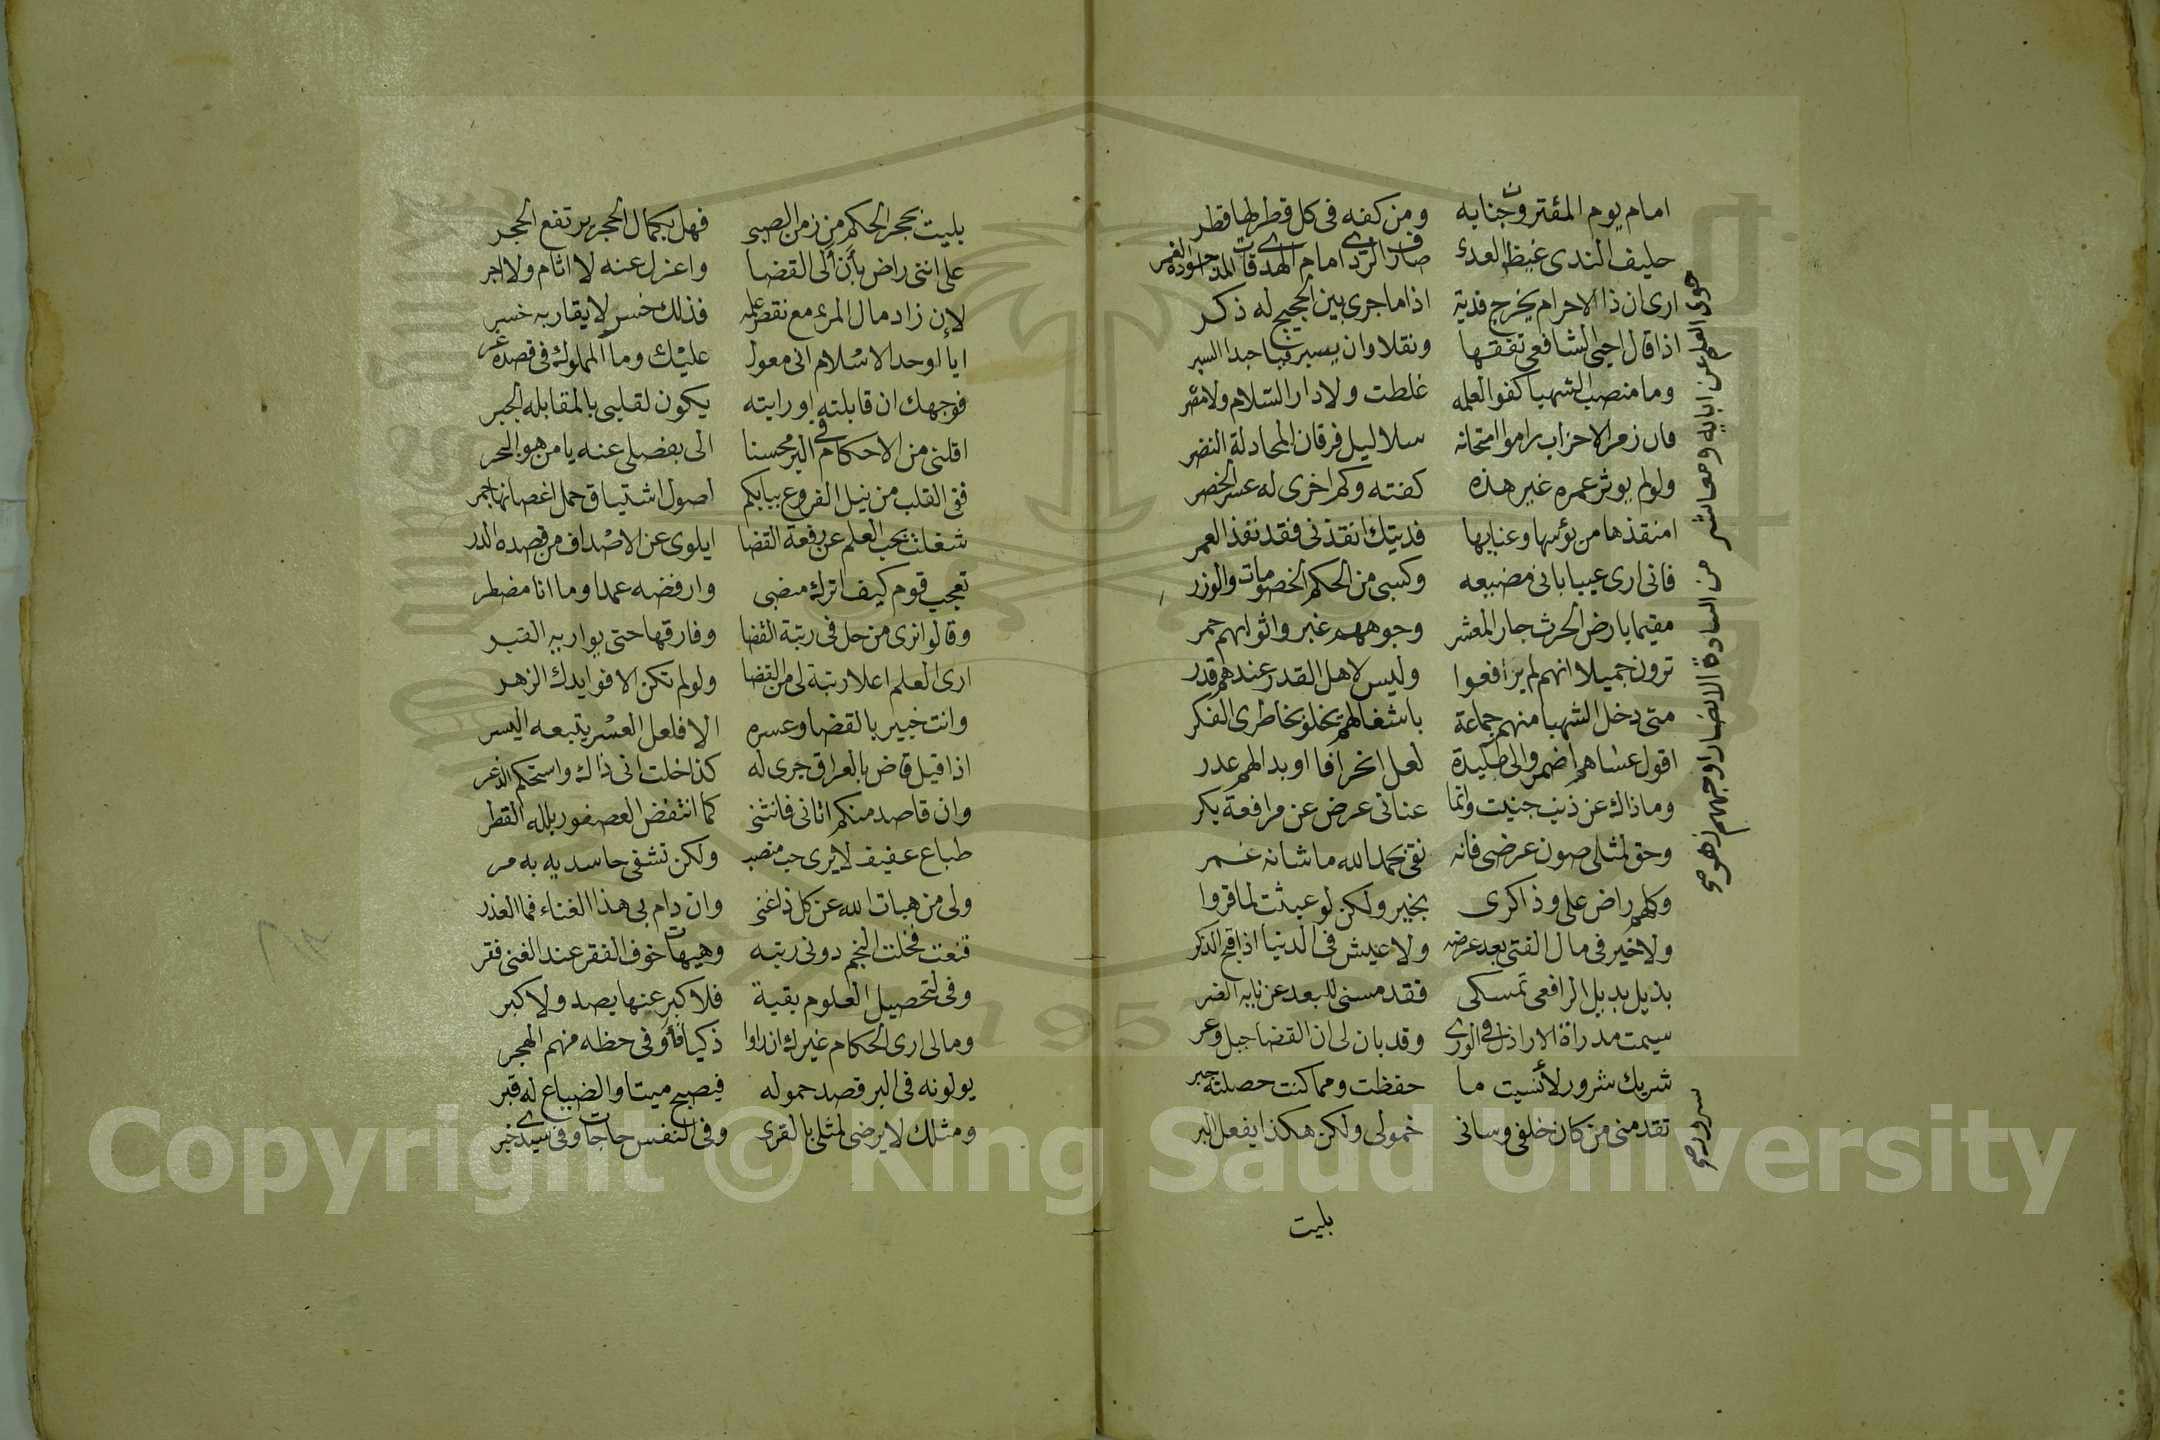 امام يوم المقترون جنابه ومن كفه فى كل قطر لها قطر
حليف الندى غيظ العدى الردا امام الهدى
ارى ان ذا الاحرام يخرج فدية اذا ما جرى بين الحجيج له ذكر
اذا قال احيى الشافعى تفقها ونقلا وان يسبر فيا حبدا السبر
وما منصب الشهبا كفوا لعلمه غلطت ولا دار السلام ولا مصر
زمر الاحزاب راموا امتحانه سلا ليل فرقان المجادلة النضر
ولو لم يوثر عمره غير هذه كفته وكم اخرى له عسر الخضر
امنقذها من بؤسها وعنايها فديتك انقذنى فقد نفذ العمر
فانى ارى عيبا بانى مضيعه وكسبى من الحكم الخصومات والوزر
مقيما بارض الحرث جار المعشر وجوههم غبر واثوابهم حمر
ترون جميلا انهم لم يرافعوا وليس لاهل القدر عندهم قدر
متى دخل الشهبا منهم جماعة باشغالهم يخلو بخاطرى الفكر
اقول عشاهم اضمروا لى لعل انحرافا او بدا لهم عدر
وما ذاك عن ذنب جنيت وانما عنانى عرض عن مرافعة بكر
وحق لمثلى صون عرضى فانه نقى بحمد الله ما شانه غمر
وكلهم راض على وذاكرى بخير ولكن لو عبثت لما قروا
ولا خير فى مال الفتى بعد عرضه ولا عيش فى الدنيا اذا قبح الذكر
بذيل بديل الرافعى تمسكى فقد مسنى للبعد عن بابه الضر
سيمت مدراة الاراذل فى الورى وقد بان لى ان القضا جبل وعر
شريك شرور لا نسيت ما حفظت ومما كنت حصلته حبر
تقدمنى من كان خلفى وسانى خمولى ولكن هكذا يفعل البر
بليت
حوى العلم عن ابايه ومعاشر من السادة الانصار اوجههم زهر صح
سرور صح
بليت بحجر الحكم من زمن الصبى فهل بكمال الحجر يرتفع الحجر
على اننى راض بأن ألى القضا واعزل عنه لا اثام ولا اجر
لإن زاد مال المرء مع نقص علمه فذلك خسر لا يقاربه خسر
ايا اوحد الاسلام انى معول عليك وما المملوك فى قصده غر
فوجهك ان قابلته او رايته يكون لقلبى بالمقابلة الجبر
اقلنى من الاحكام فى البر محسنا الى بفضلى عنه يا من هو البحر
ففى القلب من نيل الفروع ببابكم اصول اشتياق حمل اغصانها جمر
شغلت بحب العلم عن رفعة القضا ايلوى عن الاصداف من قصده الدر
تعجب قوم كيف اترك منصبى وارفضه عمدا وما انا مضطر
وقالوا نرى من حل فى رتبة القضا وفارقها حتى يواريه القبر
ارى العلم اعلا رتبة لى من القضا ولو لم تكن الا فوايدك الزهر
وانت خبير بالقضا وعسره الا فلعل العسر يتبعه اليسر
اذا قيل قاض بالعراق جرى له كذا خلت انى ذاك واستحكم الذعر
وان قاصد منكم اتانى فانثنى كما انتفض العصفور بلله القطر
طباع عفيف لا يرى حب منصب ولكن تشفى حاسديه به مر
ولى من هبات الله عن كل ذا غنى وان دام بى هذا الغناء فما العذر
قنعت فخلت النجم دونى رتبه وهيهات خوف الفقر عند الغنى فقر
وفى لتحصيل العلوم بقية فلا كبر عنها يصد ولا كبر
ومالى ارى الحكام غيرك ان راوا ذكيا فأوفى حظه منهم الهجر
يولونه فى البر قصد خموله فيصبح ميتا والضياع له قبر
ومثلك لا يرضى لمثلى بالقرى وفى النفس حاجات وفى سيدى خبر